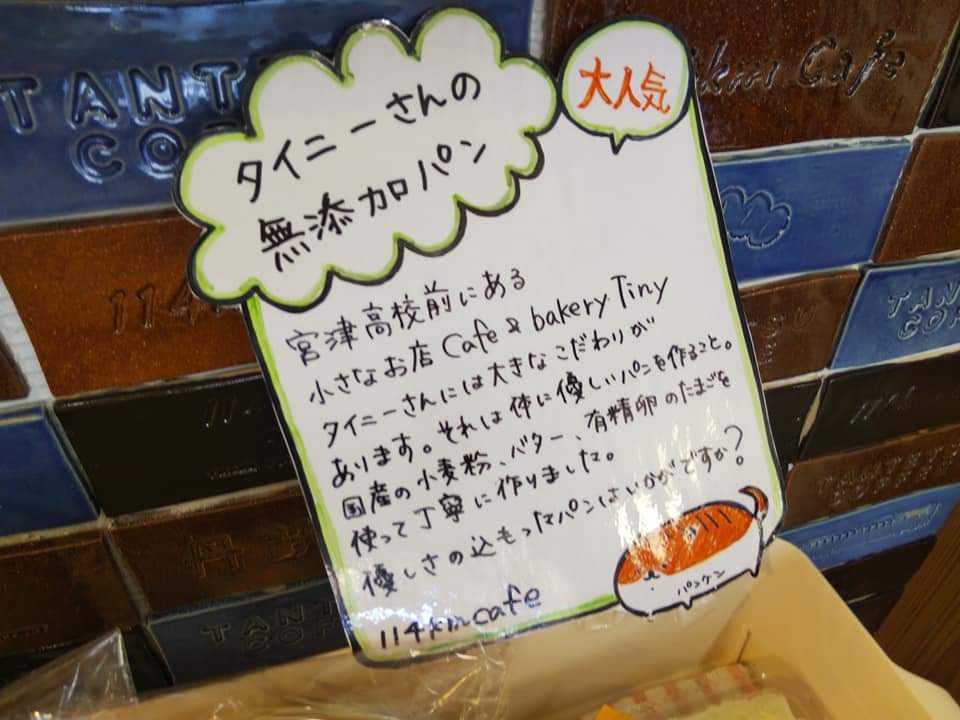 タイニーさんの
無添加パン
大人気
宮津高校前にある
小さなお店 Cafe & bakery Tiny
タイニーさんには大きなこだわりが
あります。それは体に優しいパンを作ること。
国産の小麦粉、バター、有精卵のたまごを
使って丁寧に作りました。
優しさの込もったパンはいかがですか?
114kmcafe
パンケン
TANT
CO
Cafe
114
TAN
COF